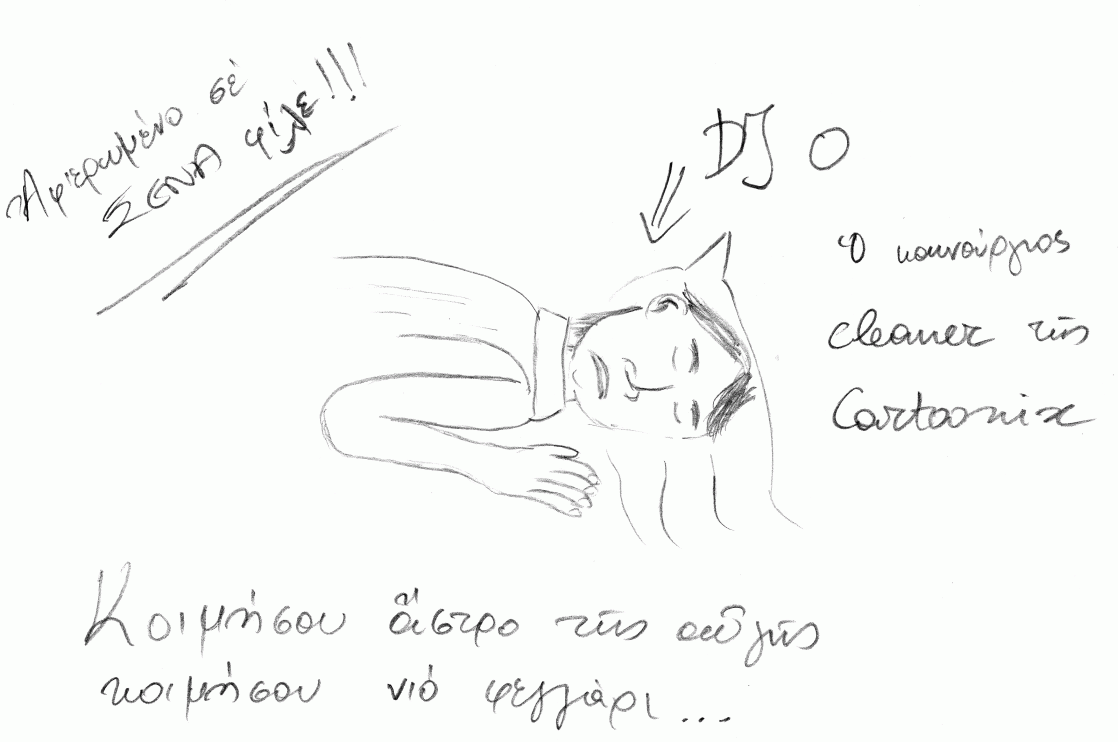 Ἀφιερωμένο σέ
ΣΕΝΑ φίλε!!!
DJ O
Ὁ καινούργιος
cleaner τῆς
Cartoonix
Κοιμήσου ἄστρο τῆς αὐγῆς
κοιμήσου νιό φεγγάρι...